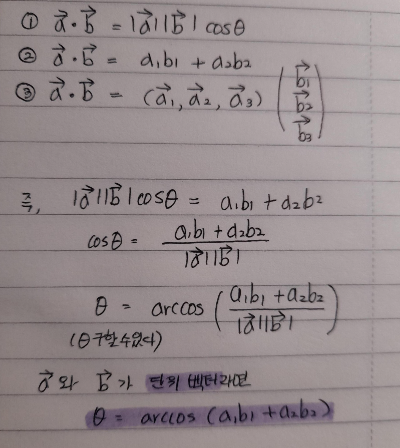 ① a⃗·b⃗ = |a⃗||b⃗| cosθ
② a⃗·b⃗ = a₁b₁ + a₂b₂
③ a⃗·b⃗ = (a⃗₁, a⃗₂, a⃗₃) (b⃗₁ b⃗₂ b⃗₃)
즉, |a⃗||b⃗| cosθ = a₁b₁ + a₂b₂
cosθ = (a₁b₁ + a₂b₂) / |a⃗||b⃗|
θ = arccos ( (a₁b₁ + a₂b₂) / |a⃗||b⃗| )
(θ 구할 수 있다)
a⃗ 와 b⃗ 가 단위 벡터라면
θ = arccos (a₁b₁ + a₂b₂)